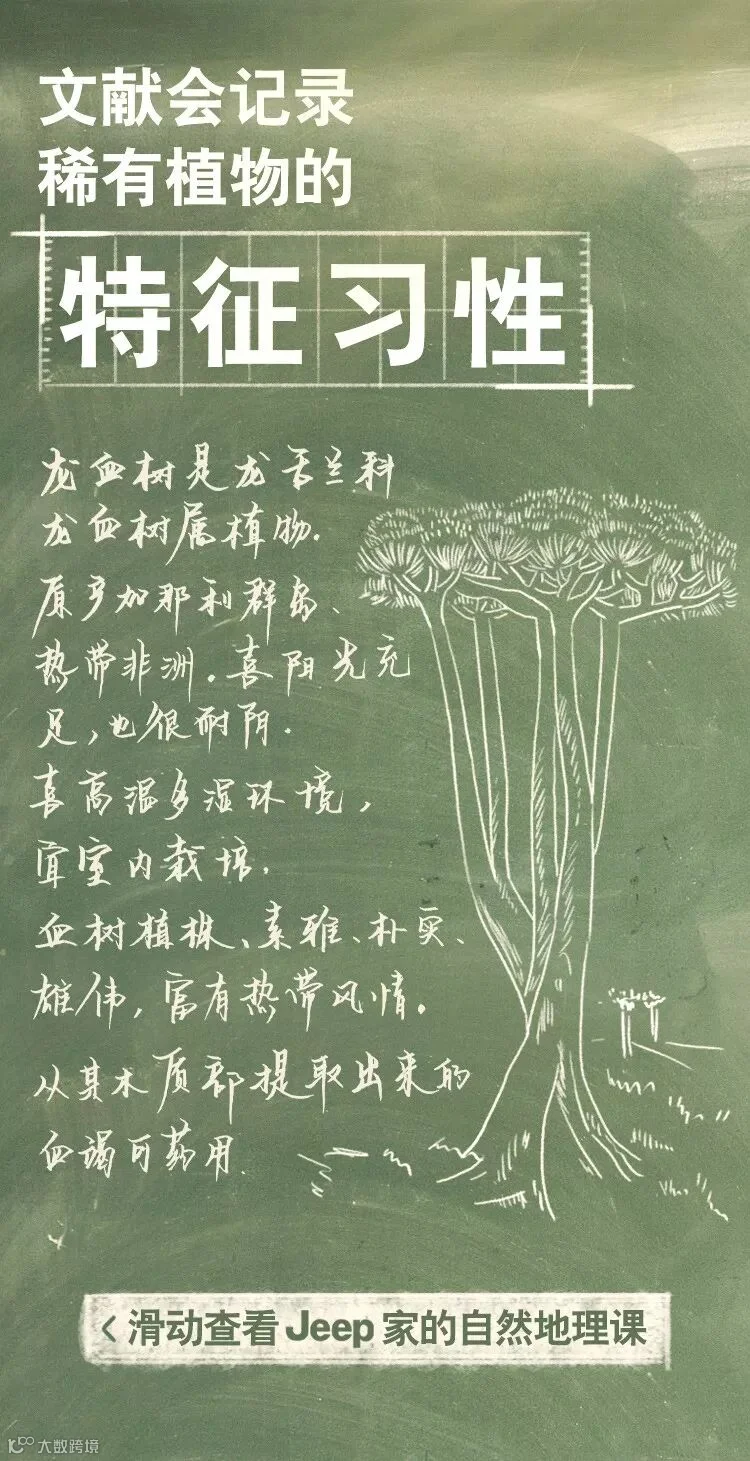 文献会记录
稀有植物的
特征习性
龙血树是龙舌兰科
龙血树属植物.
原产加那利群岛、
热带非洲。喜阳光充
足,也很耐阴.
喜高温多湿环境,
宜室内栽培.
血树植株、素雅、朴实、
雄伟,富有热带风情。
从其木质部提取出来的
血竭可药用.
<滑动查看 Jeep 家的自然地理课
大数跨境